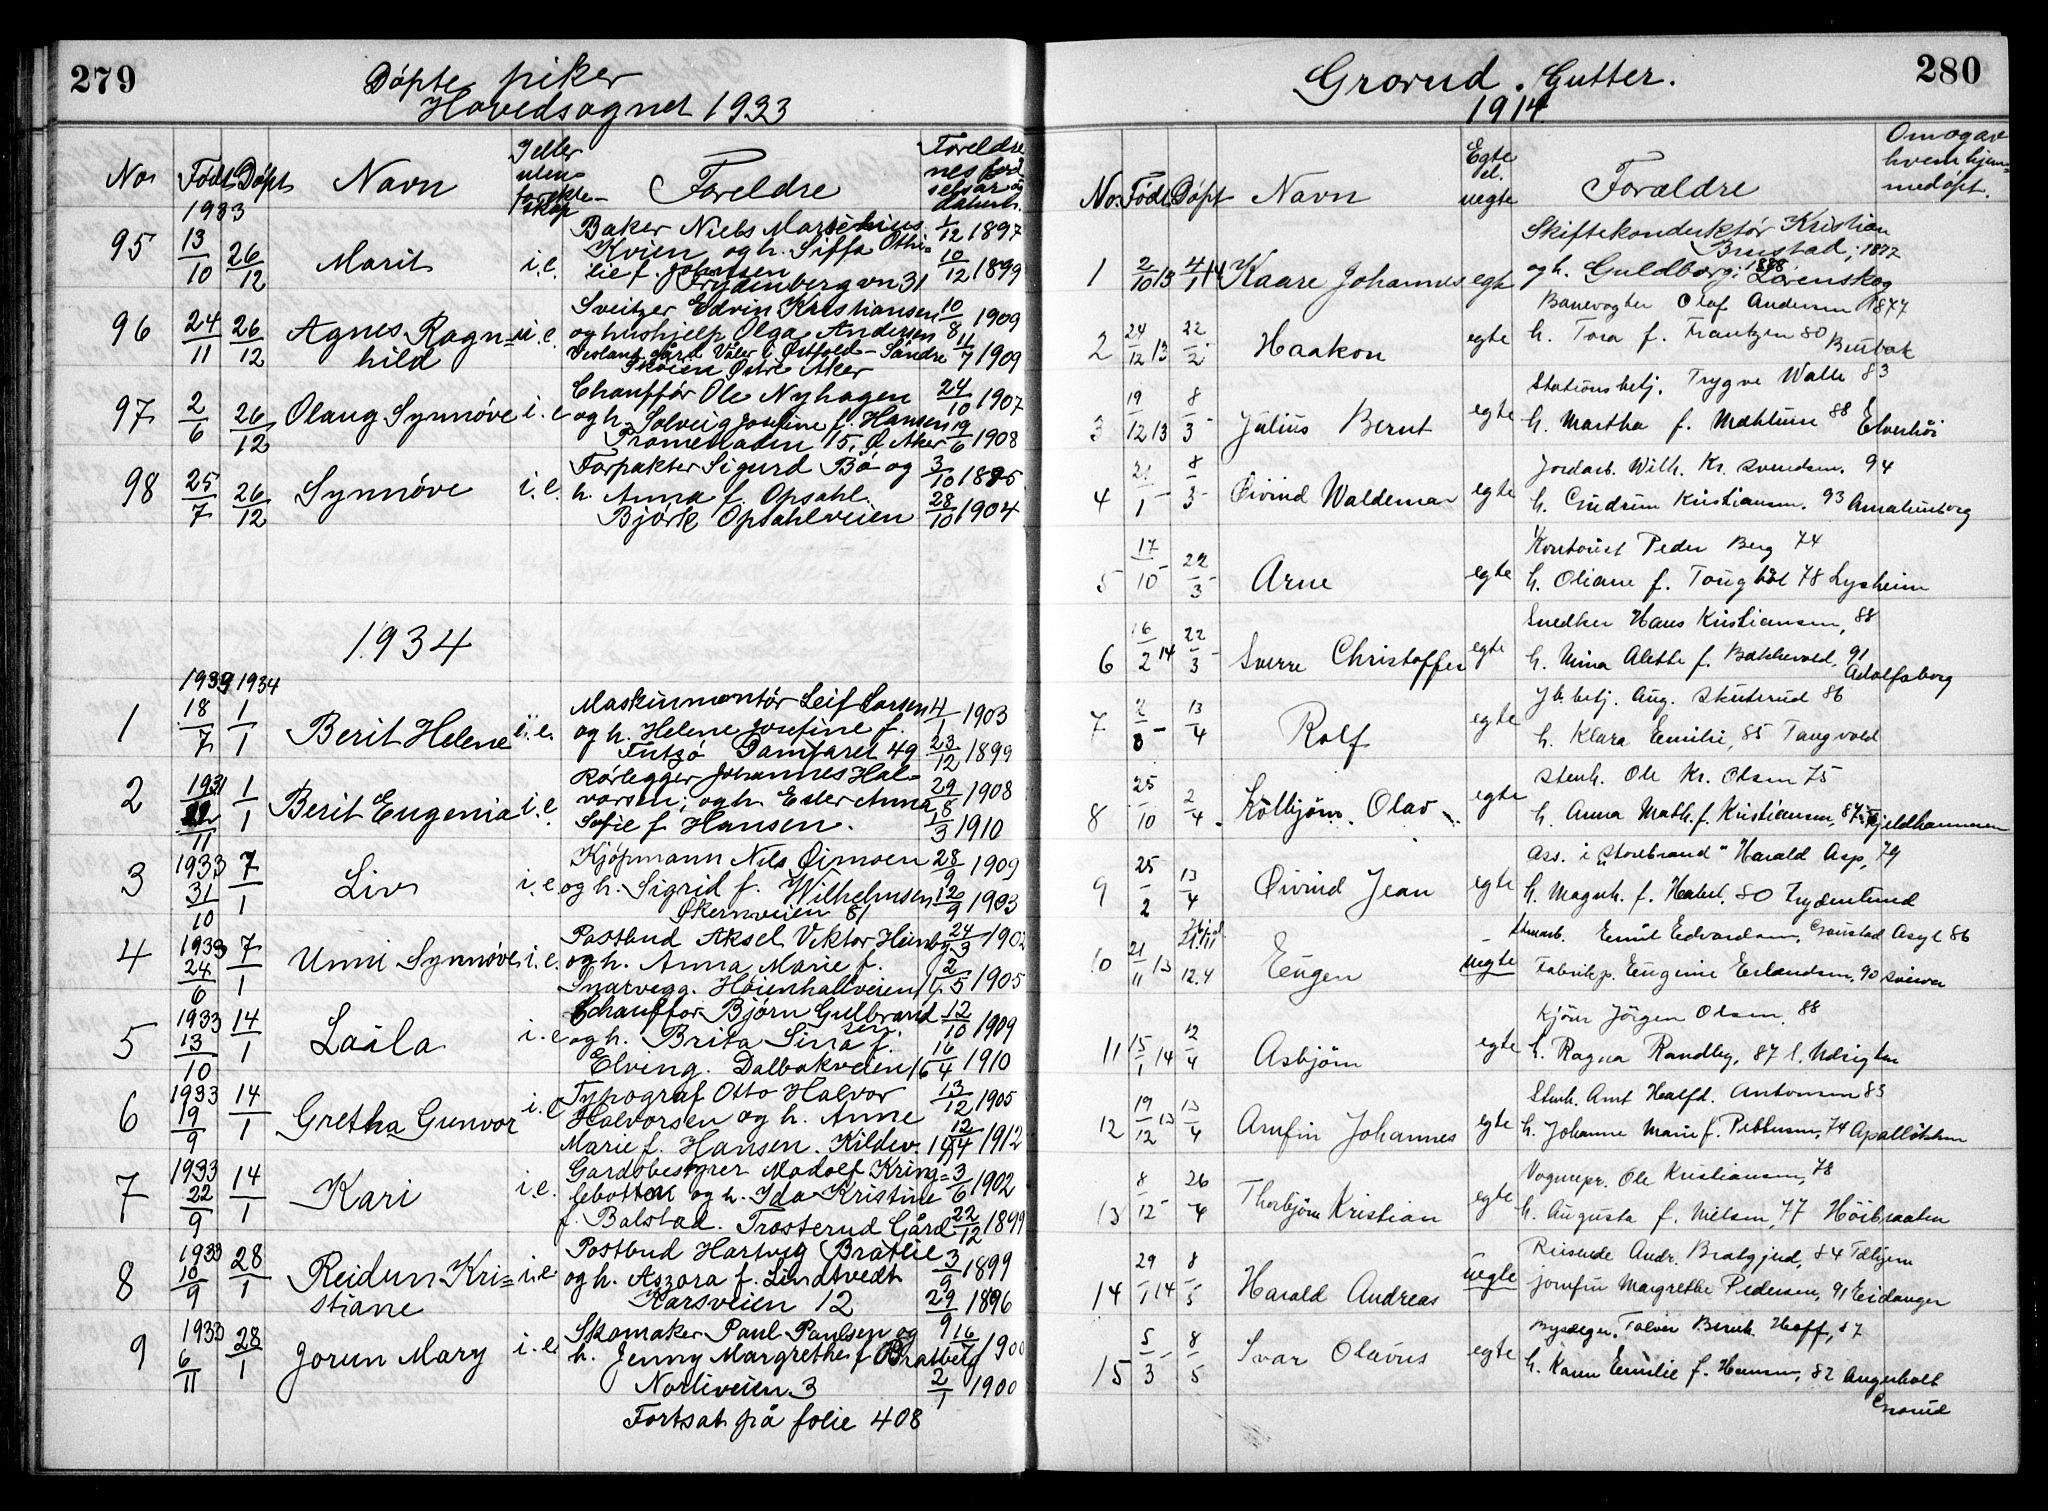 279
Døpte piker
Hovedsognet 1933
No. Født Døpt Navn I eller uten- for ekte- skap Foreldre Foreldre nes fød selsår og datum.
1933
95 13/10 26/12 Marit i.e. Baker Niels 1/12 1897
Kvien og h. 10/12 1899
lie f. Johnsen
Frydenbergvn 31
96 24/11 26/12 Agnes Ragn= hild u.e. Sveitzer Edvin Kristiansen 10/8 1909
og hushjelp Olga Andersen 11/7 1909
gård Våler i Østfold - Søndre
Skøien Østre Aker
97 2/6 26/12 Olaug Synnøve i.e. Chauffør Ole Nyhagen 24/10 1907
og h. Solveig Josefine f. Hansen 19/6 1908
Promenaden 15, Ø. Aker
98 25/7 26/12 Synnøve i.e. Forpakter Sigurd Bø og 3/10 1895
h. Anna f. Opsahl. 28/10 1904
Bjørk Opsahlveien
1934
1933 1934
1 18/7 1/1 Berit Helene i.e. Maskinmontør Leif Larsen 4/1 1903
og h. Helene Josefine f. 23/12 1899
Damfaret 49
2 1931 /11 1/1 Berit Eugenia i.e. Rørlegger Johannes Hal- 29/8 1908
vorsen, og h. Ester Anna
Sofie f. Hansen. 18/3 1910
3 1933 31/10 7/1 Liv i.e. Kjøpmann Nils Øimoen 28/9 1909
og h. Sigrid f. Wilhelmsen 12/9 1903
Økernveien 81
4 1933 24/6 7/1 Unni Synnøve i.e. Postbud Aksel Viktor 24/3 1902
og h. Anna Marie f. 2/5 1905
Snarvegg. Høienhallveien
5 1933 13/10 14/1 Laila i.e. Chauffør Bjørn Gulbrand 12/10 1909
sen.
og h. Brita Sina f.
Elving. Dalbakveien 16 16/4 1910
6 1933 19/9 14/1 Gretha Gunvor i.e. Typograf Otto Halvor 13/12 1905
Halvorsen og h. Anne
Marie f. Hansen. Kildev. 12/4 1912
7 1933 22/9 14/1 Kari i.e. Gårdsbestyrer Madolf Kring= 3/6 1902
lebotten og h. Ida Kristine
f. Balstad. Trosterud Gård 22/12 1899
8 1933 10/9 28/1 Reidun Kri= stiane i.e. Postbud Hartvig Bratlie 3/9 1899
og h. Aszora f. Lindtvedt
Karsveien 12 29/9 1896
9 1933 6/11 28/1 Jorun Mary i.e. Skomaker Paul Paulsen og 16/7 1900
h. Jenny Margrethe f. Bratberg
Nordliveien 3 2/1 1900
Fortsat på folie 408
280
Grorud. Gutter.
1914
No. Født Døpt Navn Egte el. uegte Forældre Om og av hvem hjem- medøpt.
1 2/10 13 4/1 14 Kaare Johannes egte Skiftekonduktør Kristian
Brustad, 1877
og h. Guldborg, 1888 Lørenskog
2 24/12 13 22/2 Haakon egte Banevogter Olaf Andersen 1877
h. Tora f. Frantzen 80 Brubak
3 19/12 13 8/3 Julius Bernt egte Stationsbetj. Trygve Walle 83
h. Martha f. Mæhlum 88 Elverhøi
4 21/1 8/3 Øivind Waldemar egte Jordarb. Wilh. Kr. Svendsen. 94
h. Gudrun Kristiansen. 93 Amalienborg
5 17/10 22/3 Arne egte Kontorist Peder Berg 74
h. Oliane f. 78 Lysheim
6 16/2 14 22/3 Sverre Christoffer egte Snedker Hans Kristiansen, 88
h. Mina Alette f. Bakkevold, 91
Adolfsborg
7 2/3 13/4 Rolf egte Jb. betj. Aug. Skuterud 86
h. Klara Emilie, 85 Tangvold
8 25/10 2/4 Kolbjørn Olav egte Stenh. Ole Kr. Olsen 75
h. Anna Math. f. Kristiansen, 87 Fjeldhammeren
9 25/2 13/4 Øivind Jean egte Ass. i "Storebrand" Harald Asp, 79
h. Magnh. f. 80 Frydenlund
10 21/11 13 12.4 Eugen uegte Stenarb. Emil Edvardsen, Gaustad Asyl 86
Fabrikp. Eugenie Erlandsen, 90
11 15/1 14 12/4 Asbjørn egte Kjører Jørgen Olsen 88
h. Ragna Randby, 87 l. Udsigten
12 19/12 13 13/4 Arnfin Johannes egte Stenh. Arnt Halfd. Antonsen 83
h. Johanne Marie f. Pettersen, 74 Apalløkken
13 8/12 26/4 Thorbjørn Kristian egte Vognrepr. Ole Kristiansen, 78
h. Augusta f. Nielsen, 77 Høibraaten
14 29/1 14 8/5 Harald Andreas uegte Reisende Andr. Bratgjerd, 84
jomfru Margrethe Pedersen, 91 Eidanger
15 5/3 8/5 Ivar Olavus egte Tolver Bernh. Hoff, 87
h. Karen Emilie f. Hansen, 82 Angerholt
Grorud